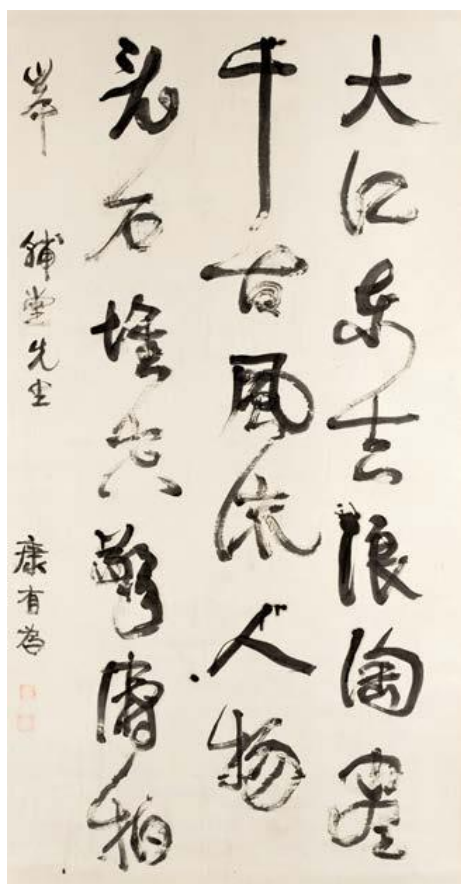 大江東去浪淘盡
千古風流人物
亂石空驚濤拍
岸　堂先生　康有為